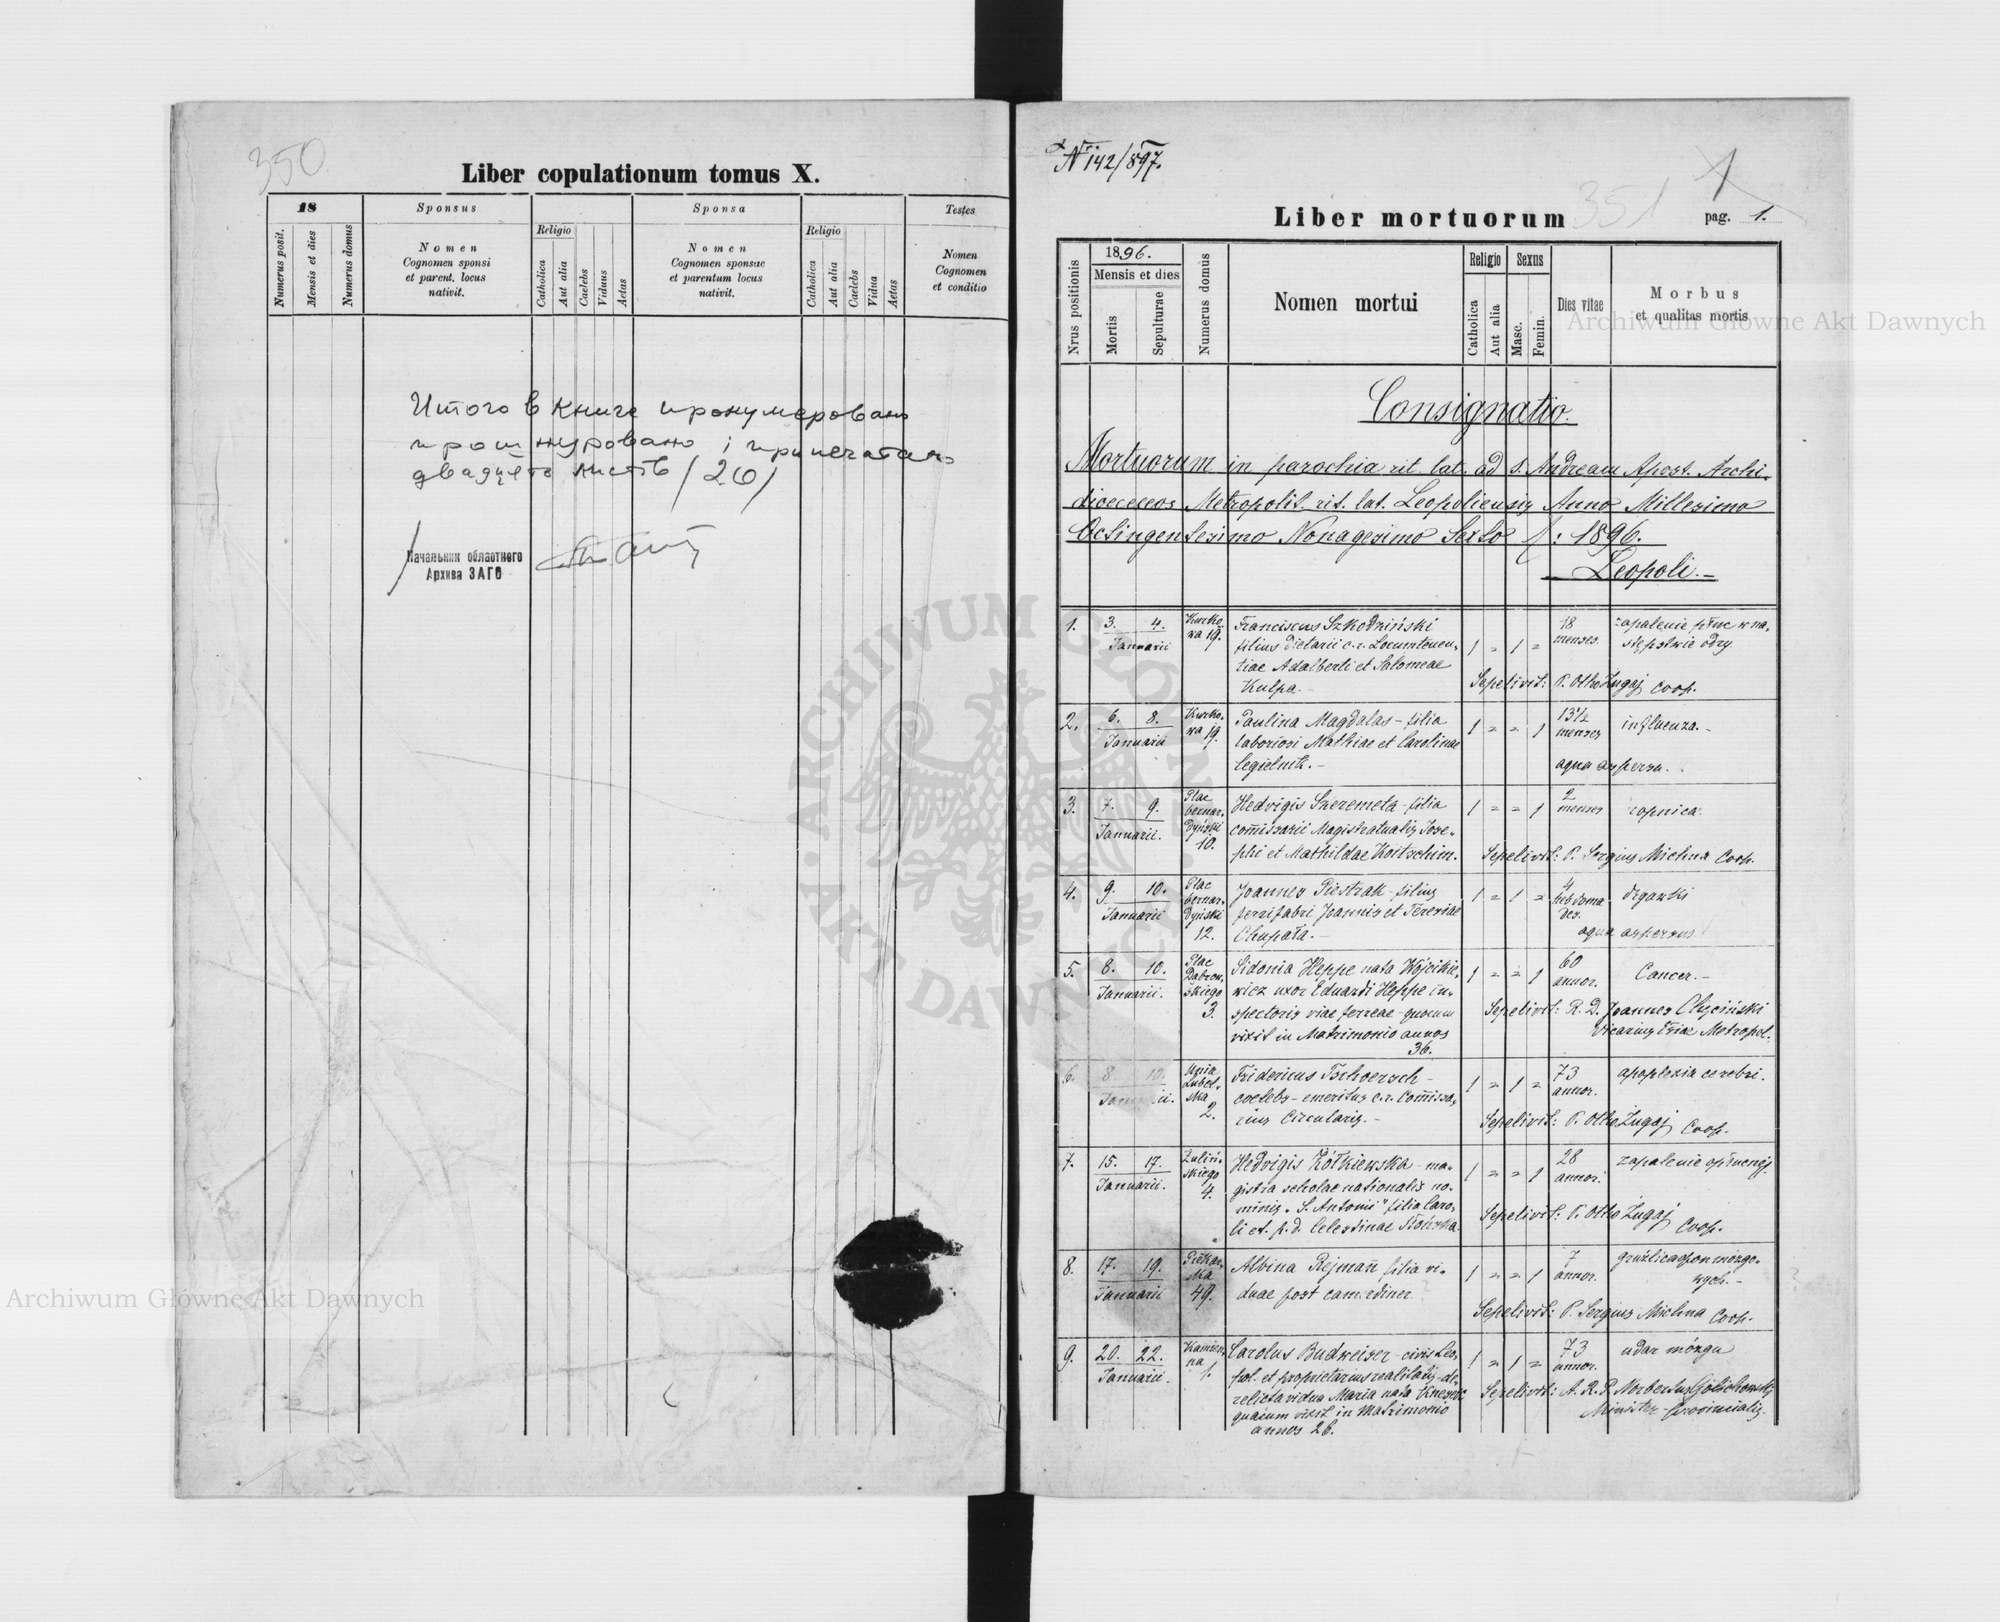 350
Liber copulationum tomus X.
18
Sponsus
Sponsa
Testes
Religio
Religio
Numerus posit.
Mensis et dies
Numerus domus
Nomen
Cognomen sponsi
et parent. locus
nativit.
Catholica
Aut alia
Caelebs
Viduus
Aetas
Nomen
Cognomen sponsae
et parentum locus
nativit.
Catholica
Aut alia
Caelebs
Vidua
Aetas
Nomen
Cognomen
et conditio
Итого в книге пронумеровано
прошнуровано і припечатано
листів /26/
Начальник областного
Архива ЗАГС
Nr 142/897.
351
1
Liber mortuorum
pag. 1.
Nrus positionis
1896.
Mensis et dies
Mortis
Sepulturae
Numerus domus
Nomen mortui
Religio
Catholica
Aut alia
Sexus
Masc.
Femin.
Dies vitae
Morbus
et qualitas mortis
Consignatio.
Mortuorum in parochia rit. lat. ad S. Andream Apost. Archi-
dioeceseos Metropolit. rit. lat. Leopoliensis Anno Millesimo
Octingentesimo Nonagesimo Sexto /: 1896.
Leopoli.-
1. 3. 4. Januarii
Kurko-
wa 19.
Franciscus Szkodziński
filius dietarii c.r. Locumtenen-
tiae Adalberti et Salomeae
Kulpa.-
1 = 1 =
18
menses.
zapalenie płuc w na-
stępstwie odry.
Sepelivit: P. Otho Zugaj Coop.
2. 6. 8. Januarii
Kurko-
wa 19.
Paulina Magdalas - filia
laboriosi Mathiae et Carolinae
Cegielnik.-
1 = = 1
13½
menses
influenza.-
aqua aspersa.
3. 7. 9. Januarii.
Plac
bernar-
dyński
10.
Hedvigis Szeremeta - filia
comissarii Magistratualis Jose-
phi et Mathildae Koitschim.
1 = = 1
2
menses
ropnica
Sepelivit: P. Sergius Michna Coop.
4. 9. 10. Januarii
Plac
bernar-
dyński
12.
Joannes Piestrak - filius
ferrifabri Joannis et Teresiae
Chupała.-
1 = 1 =
4
hebdoma-
des.
drgawki
aqua aspersus
5. 8. 10. Januarii.
Plac
Dąbrow-
skiego
3.
Sidonia Heppe nata Wójcikie-
wicz uxor Eduardi Heppe in-
spectoris viae ferreae - quocum
vixit in Matrimonio annos
36.
1 = = 1
60
annor.
Cancer.-
Sepelivit: R. D. Joannes
Vicarius Metropol.
6. 8. 10. Januarii.
Unia
Lubel-
ska
2.
Fridericus Tschoersch -
coelebs - emeritus c.r. Comissa-
rius Circularis.-
1 = 1 =
73
annor.
apoplexia cerebri.
Sepelivit: P. Otho Zugaj Coop.
7. 15. 17. Januarii.
Zuliń-
skiego
4.
Hedvigis Żółkiewska - ma-
gistra scholae nationalis no-
minis „S. Antonii" filia Caro-
li et p. d. Celestinae
1 = = 1
28
annor.
zapalenie opłucnej.
Sepelivit: P. Otho Zugaj
Coop.
8. 17. 19. Januarii
Piekar-
ska
49.
Albina Rejmañ filia vi-
duae post
1 = = 1
7
annor.
gruźlica opon mózgo-
wych.-
Sepelivit: P. Sergius Michna Coop.
9. 20. 22. Januarii.
Kamien-
na
1.
Carolus Budweiser - civis Leo-
pol. et proprietarius realitatis - de-
relicta vidua Maria nata
quacum vixit in Matrimonio
annos 26.
1 = 1 =
73
annor.
udar mózgu
Sepelivit: A. R. P. Norbertus Golichowski
Minister Provincialis.
Archiwum Główne Akt Dawnych
Archiwum Główne Akt Dawnych
ARCHIWUM GŁÓWNE AKT DAWNYCH